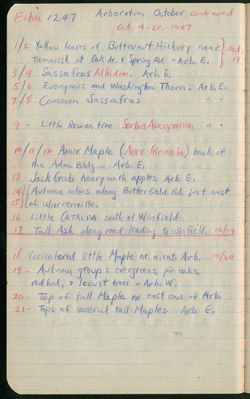 Film 1247 Arboretum October continued
Oct. 19-20, 1947
1/2 Yellow leaves of Butternut Hickory near Oct.
Tamarisk at Oak Dr. & Spring Rd. - Arb. E. 19
3/4 Sassafras Albidum. Arb. E.
5/6 Evonymus and Washington Thorn. Arb. E.
7/8 Common Sassafras " "
9 - Little Rowan tree. Sorbus Aucuparia. " "
10/11/12 Amur Maple (Acer Ginnala) back of
the Adm. Bldg. - Arb. E.
13 Jack Crab heavy with apples Arb. E.
14 Autumn colors along Butterfield Rd. just east
15 of Warrenville.
16 Little CATALPA south of Winfield
17 Tall Ash along road leading to Winfield. 10/19
18 Varicolored little Maple nr. W. ent. Arb. 10/20
19 - Autumn group: evergreens, pin oaks,
redbud, & locust trees - Arb. W.
20 - Top of tall Maple nr. east end of Arb.
21 - Tops of several tall Maples. Arb E.